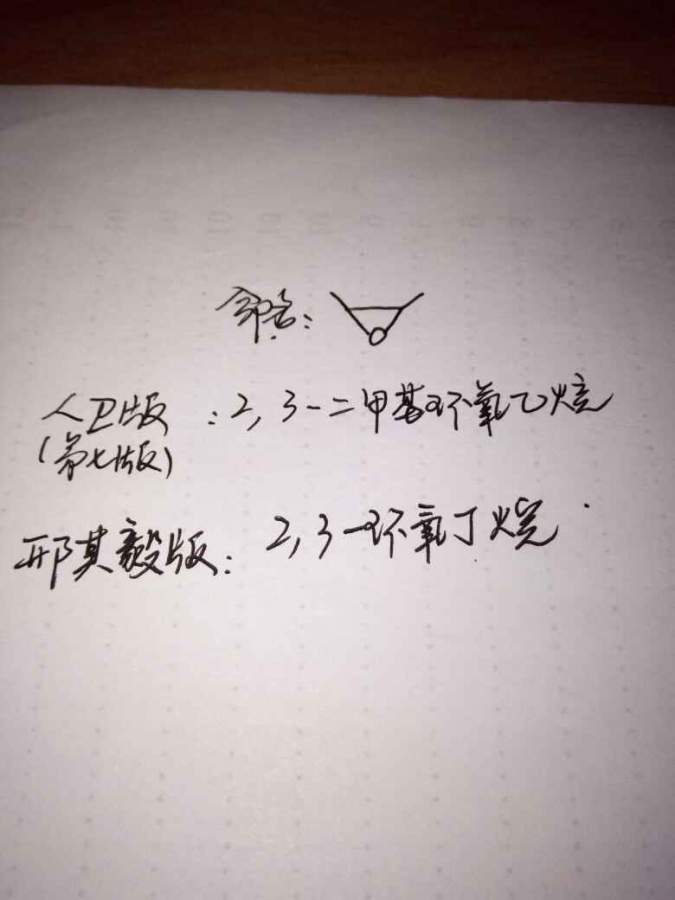 命名：
人卫版：2,3-二甲基环氧乙烷
(第七版)
邢其毅版：2,3-环氧丁烷